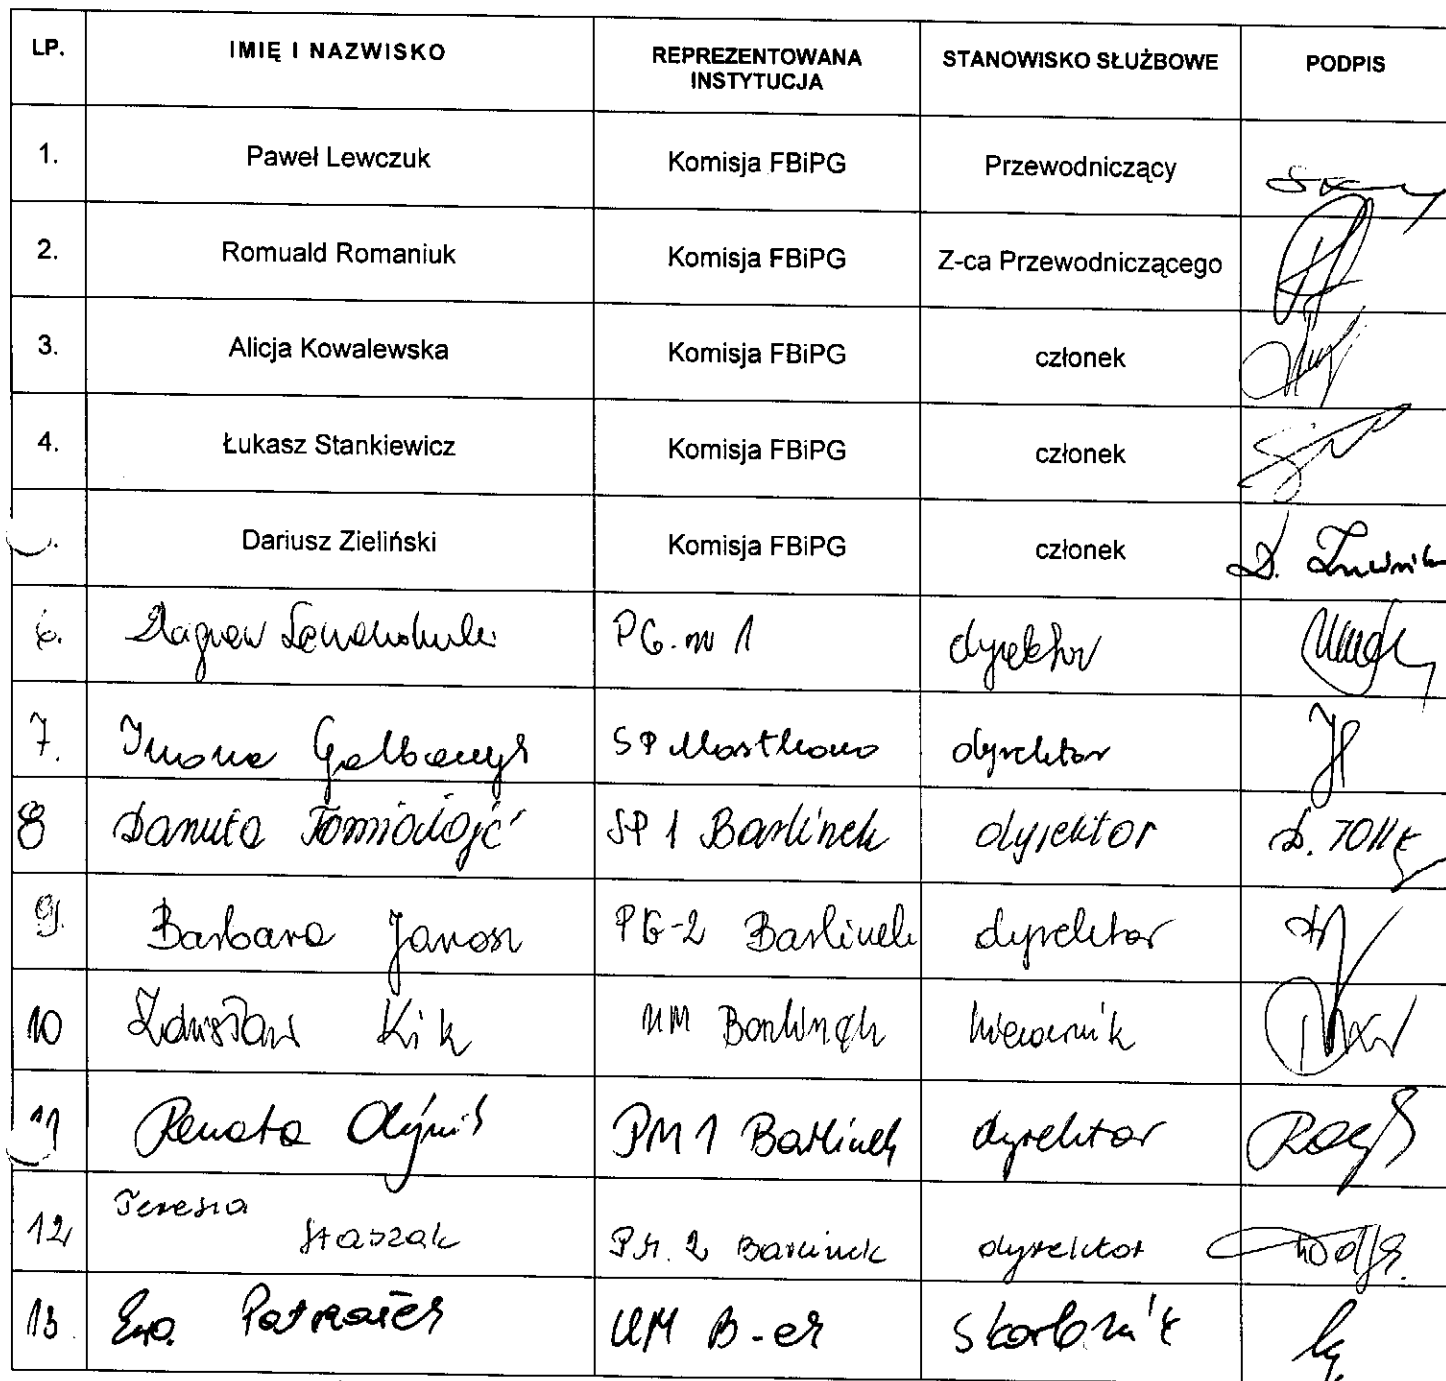 LP. IMIĘ I NAZWISKO REPREZENTOWANA INSTYTUCJA STANOWISKO SŁUŻBOWE PODPIS
1. Paweł Lewczuk Komisja FBiPG Przewodniczący
2. Romuald Romaniuk Komisja FBiPG Z-ca Przewodniczącego
3. Alicja Kowalewska Komisja FBiPG członek
4. Łukasz Stankiewicz Komisja FBiPG członek
Dariusz Zieliński Komisja FBiPG członek D.
6. PG. nr 1 dyrektor
7. Iwona SP Mostkowo dyrektor
8 Danuta Tomiałojć SP 1 Barlinek dyrektor D.
9. Barbara Jarosz PG-2 Barlinek dyrektor
10 Zdzisław Kik UM Barlinek kierownik
11 Renata PM 1 Barlinek dyrektor
12 Teresa Staszak 2 Barlinek dyrektor
13. Ewa UM B-ek Skarbnik